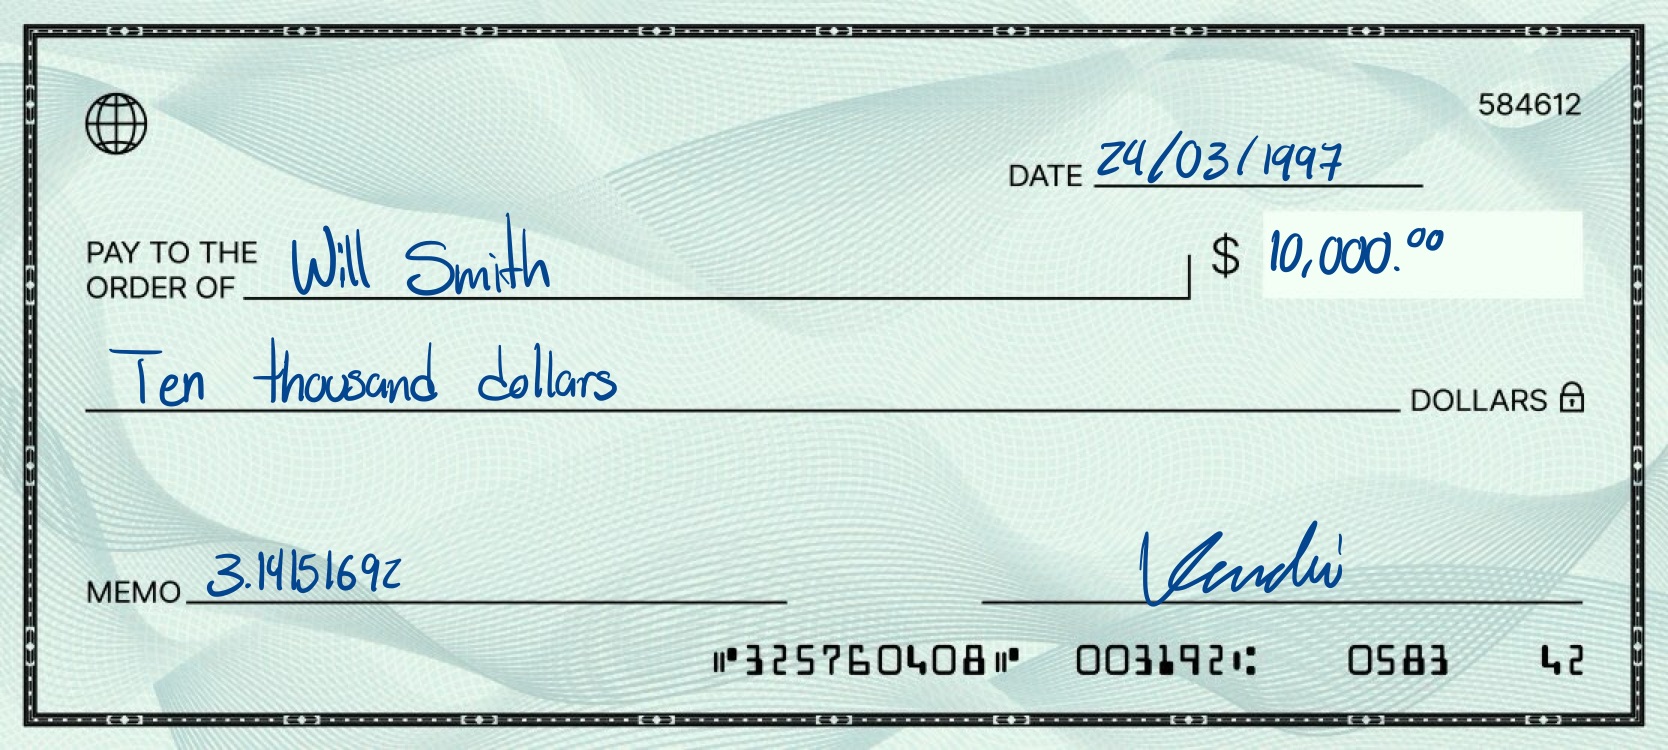 584612
DATE 24/03/1997
PAY TO THE ORDER OF Will Smith $ 10,000.00
Ten thousand dollars DOLLARS
MEMO 3.14151692
325760408 003192 0583 42